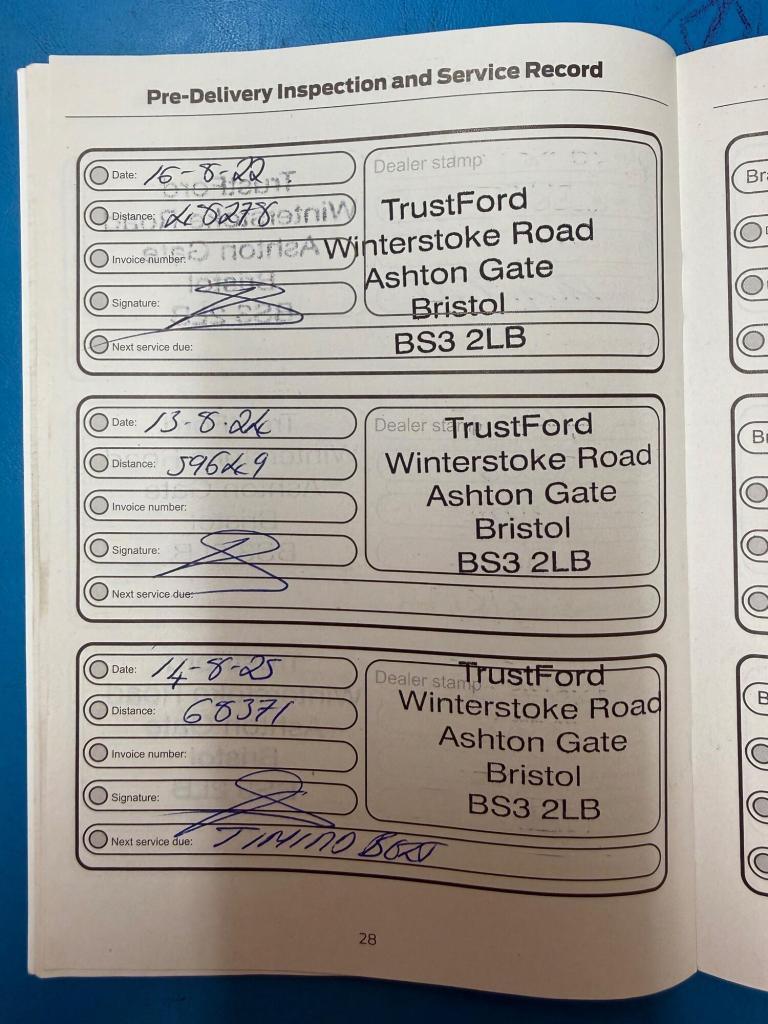 Pre-Delivery Inspection and Service Record
Date: 16-8-22
Distance: 48278
Invoice number:
Signature:
Next service due:
Dealer stamp
TrustFord
Winterstoke Road
Ashton Gate
Bristol
BS3 2LB
Date: 13-8-24
Distance: 59649
Invoice number:
Signature:
Next service due:
Dealer stamp
TrustFord
Winterstoke Road
Ashton Gate
Bristol
BS3 2LB
Date: 14-8-25
Distance: 68371
Invoice number:
Signature:
Next service due: TIMING BELT
Dealer stamp
TrustFord
Winterstoke Road
Ashton Gate
Bristol
BS3 2LB
28
Br
Br
B